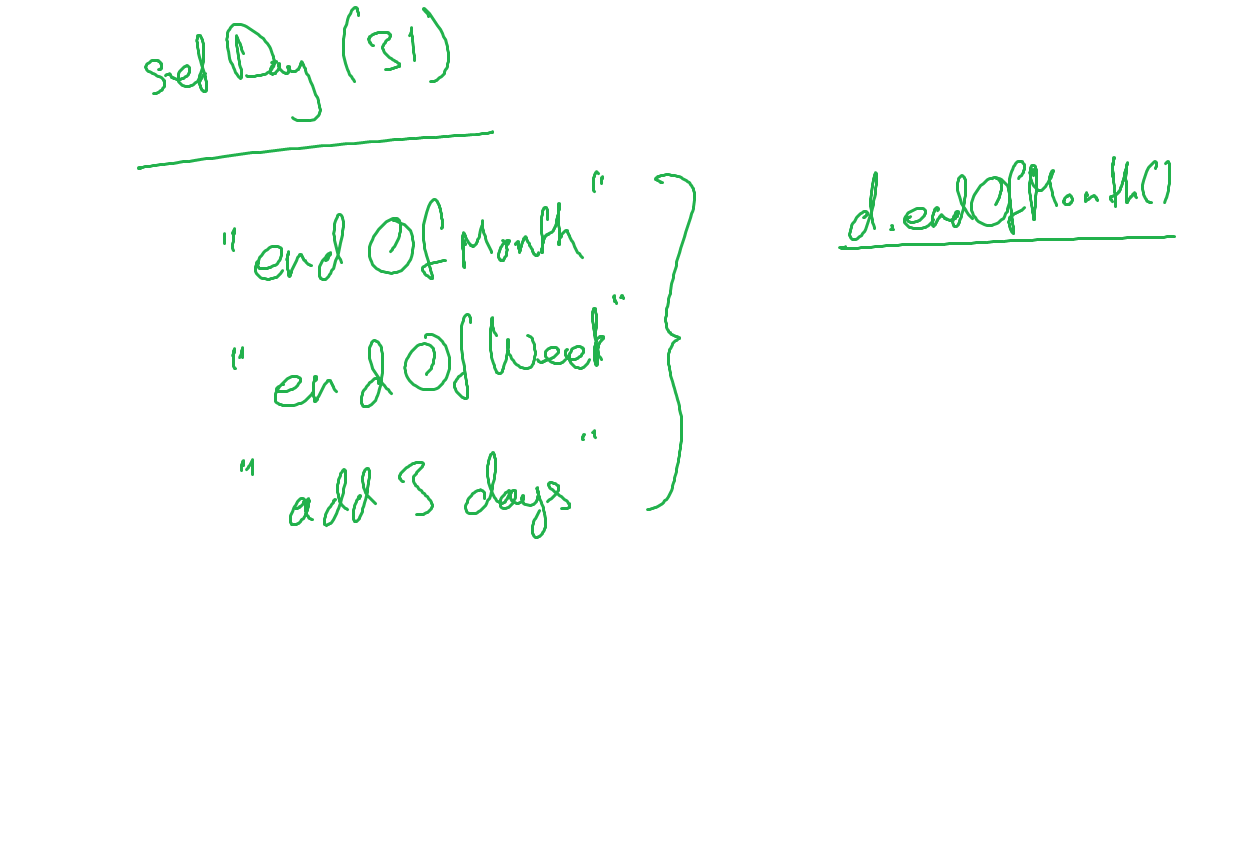 setDay (31)
"endOfMonth"
"endOfWeek"
"add 3 days"
d.endOfMonth()